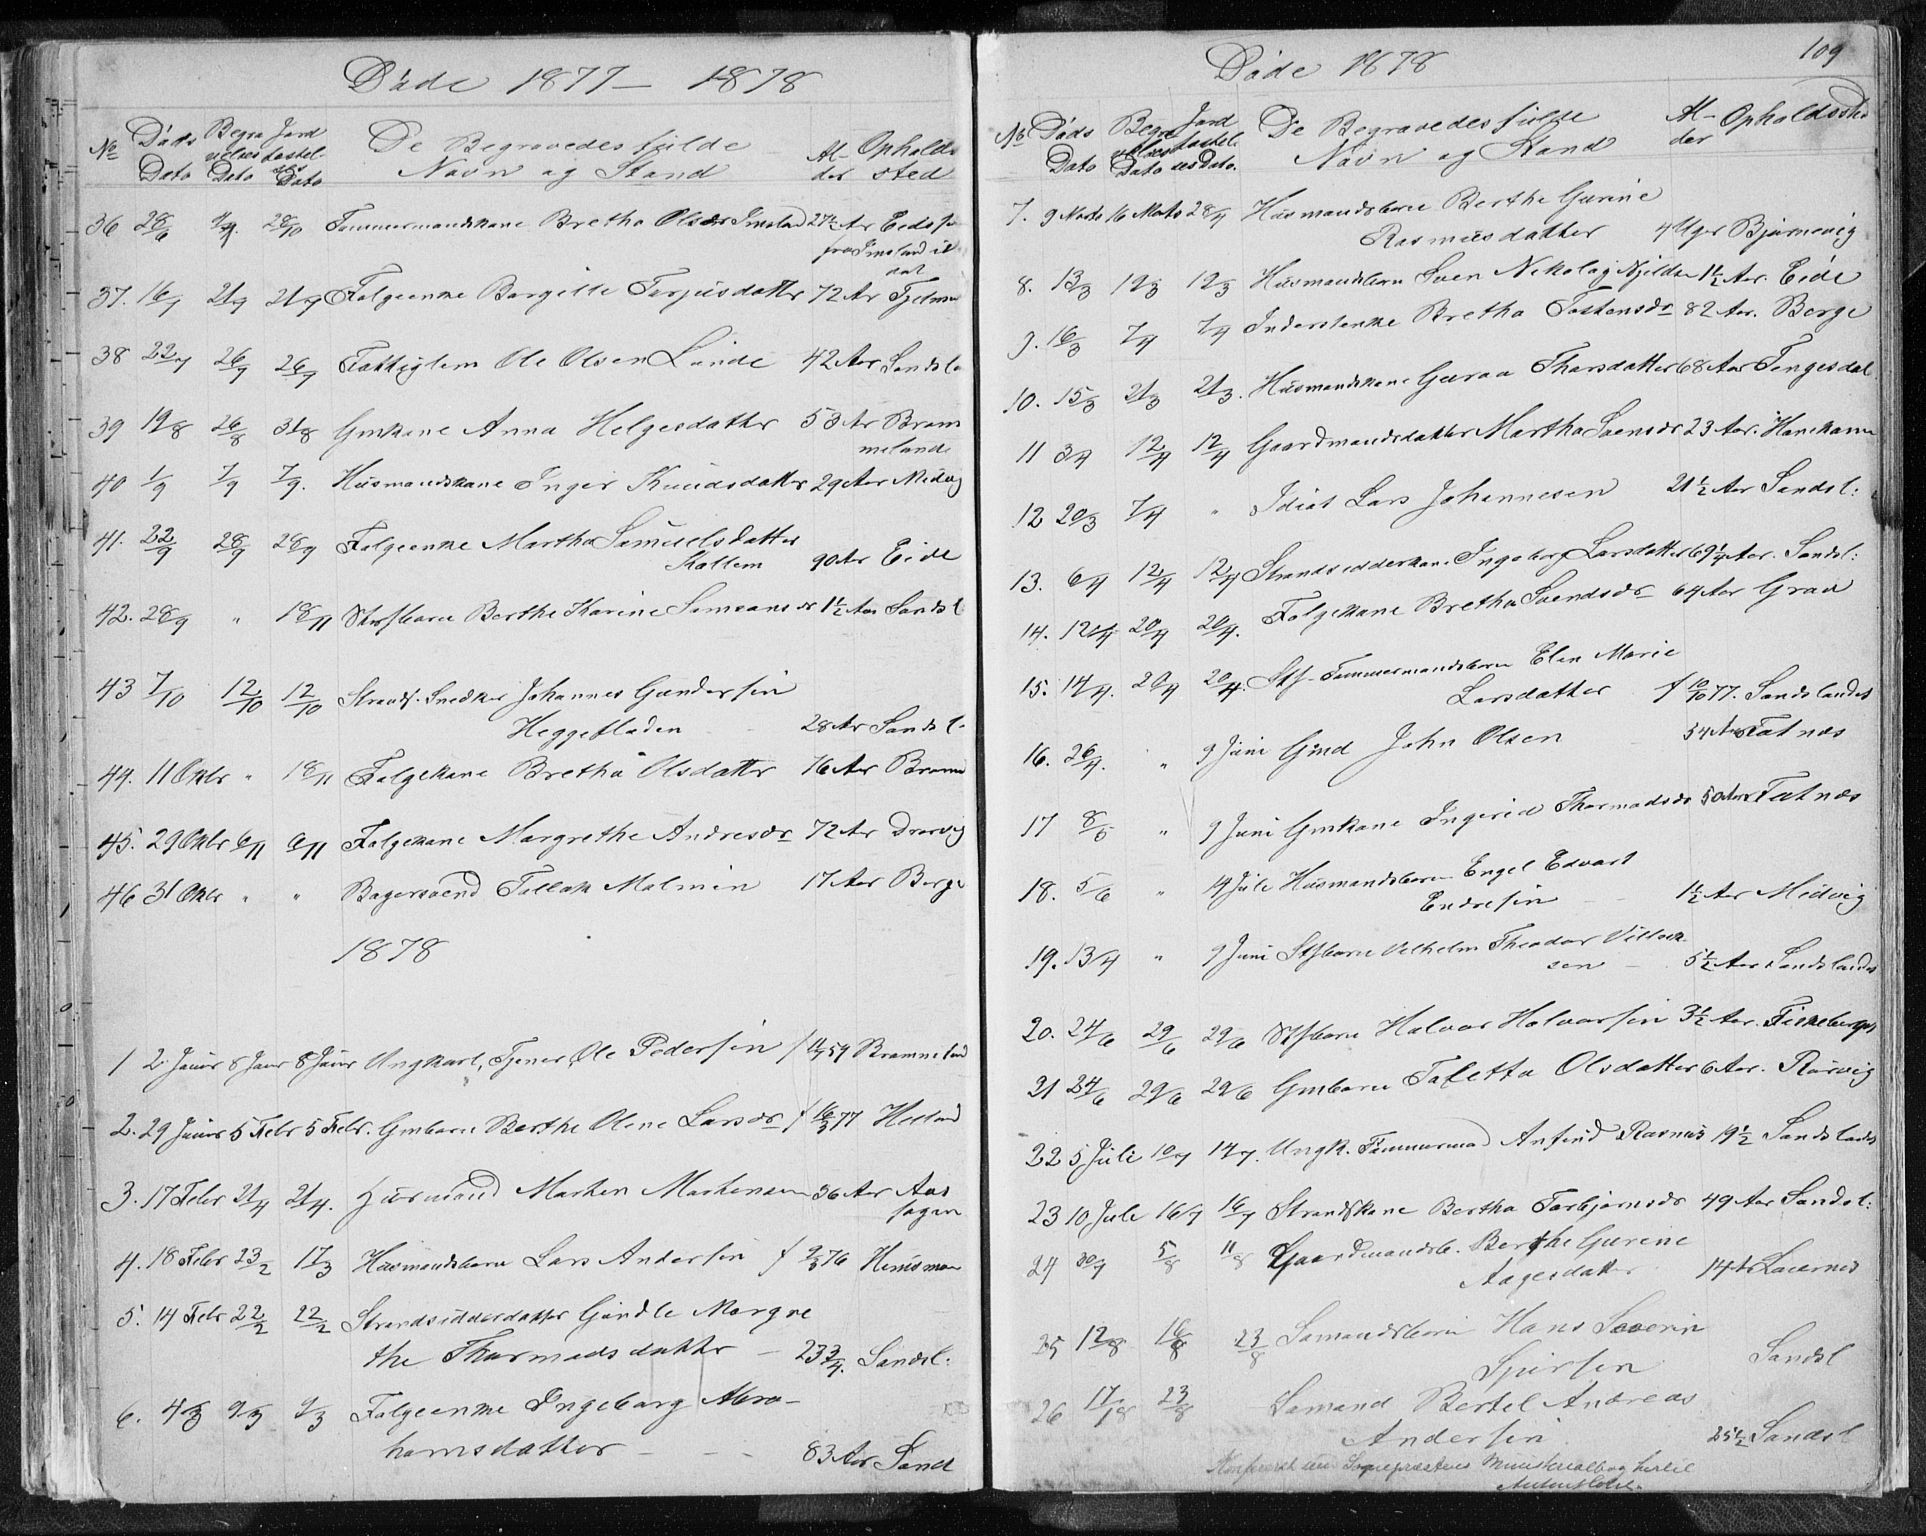 Døde 1877 — 1878
No Døds Dato Begravelses Dato Jordfæstelses Dato De Begravedes fulde Navn og Stand Alder Opholdssted
36 28/6 28/10 Tømmermandskone Bretha Olsdr Imsland 27½ Aar
fra Imsland
37. 16/7 21/7 21/7 Folgeenke Borgille Terjusdatter 72 Aar
38 22/7 26/7 26/7 Fattiglem Ole Olsen Lunde 42 Aar Sandsl
39 19/8 26/8 31/8 Gmkone Anna Helgesdatter 53 Ar Bram
melande
40 1/9 7/9 7/9. Husmandskone Inger Knudsdatter 29 Aar Midvig
41. 22/9 28/9 28/9 Folgeenke Martha Samuelsdatter
Kallem 90 Aar Eide
42. 28/9 " 18/11 Strsfbarn Berthe Karine Simonsdr 1½ Aar Sandsl
43 7/10 12/10 12/10 Strandf. Snedker Johannes Gundersen
Heggefladen 28 Ar Sandsl.
44. 11 Oktbr " 18/11 Folgekone Bretha Olsdatter 76 Aar Bramm
45. 29 Oktbr 6/11 6/11 Folgekone Margrethe Andresdr 72 Aar Drarvig
46 31 Oktbr " " Bagersvend Tollak Malmin 17 Aar Berge
1878
1 2. Januar 8 Janr 8 Janr Ungkarl, Tjener Ole Pedersen f 59 Brammeland
2. 29 Januar 5 Febr 5 Febr. Gmbarn Berthe Oline Larsdr f 16/3 77 Helland
3. 17 Febr 21/4 21/4. Gaardmand Morten Mortensen 36 Aar
4. 18 Febr 23/2 17/3 Husmandsbarn Lars Andersen f 9/3 76
5. 14 Febr 22/2 22/2 Strandsidderdatter Gundle Margre
the Thormodsdatter — 23¾. Sandsl.
6. 4/3 9/3 9/3 Folgeenke Ingeborg Abra-
hamsdatter — — 83 Aar Sand
Døde 1878
109
No Døds Dato Begravelses Dato Jordfæstelses Dato. De Begravedes fulde Navn og Stand Alder Opholdssted
7. 9 Marts 16 Marts 28/4 Husmandsbarn Berthe Gurine
Rasmusdatter 4 Uger Bjørnevig
8. 13/3 19/3 19/3 Husmandsbarn Sven Nikolay 1½ Aar. Eide
9. 16/3 7/4 7/4 Inderstenke Bretha Tostensdr 82 Aar. Berge
10. 15/3 21/3 21/3. Husmandskone Guroa Thorsdatter 68 Aar Tengesdal
11 3/4 12/4 12/4 Gaardmandsdatter Martha Svensdr 23 Aar. Hanekam
12 20/3 7/4 " Idiot Lars Johannesen 21½ Aar Sandsl:
13. 6/4 12/4 12/4 Strandsidderkone Ingeborg Larsdatter 69¼ Aar. Sandsl:
14. 12/4 20/4 20/4. Folgekone Bretha Svendsdr 64 Aar Grav
15. 14/4. 20/4 20/4. Stsf- Tømmermandsbarn Elen Marie
Larsdatter f 10/10 77. Sandslandet
16. 26/4. " 9 Juni Gmd John Olsen 54 Aar Fatnæs
17 8/5 " 9 Juni Gmkone Ingerid Thormodsdr 50 Aar Fatnæs
18. 5/6 " 14 Juli Husmandsbarn Engel Edvart
Endresen — 1½ Aar Midvig
19. 13/4 " 9 Juni Stsfbarn Vilhelm Theodor Villock-
sen — 5½ Aar Sandslandet
20. 24/6 29/6 29/6 Stsfbarn Halvor Halvorsen 3½ Aar. Fiskebergs
21 24/6 29/6 29/6 Gmbarn Taletta Olsdatter 6 Aar. Rørvig
22 5 Juli 10/7 14/7. Ungk. Tømmermd Anfind Rasmus 19½ Sandslandet
23 10 Juli 16/7 16/7 Strandfkone Bertha Torbjørnsdr 49 Aar Sandsl:
24 30/7 5/8 11/8 Gaardmandsb. Berthe Gurine
Aagesdatter 14
25 12/8 16/8 23/8 Sømandsbarn Hans Severin
Sandsl
26 17/8 23/8 Sømand Bertel Andreas
Andersen 25½ Sandsl
Konfereret med Sognepræstens Ministerialbog hertil